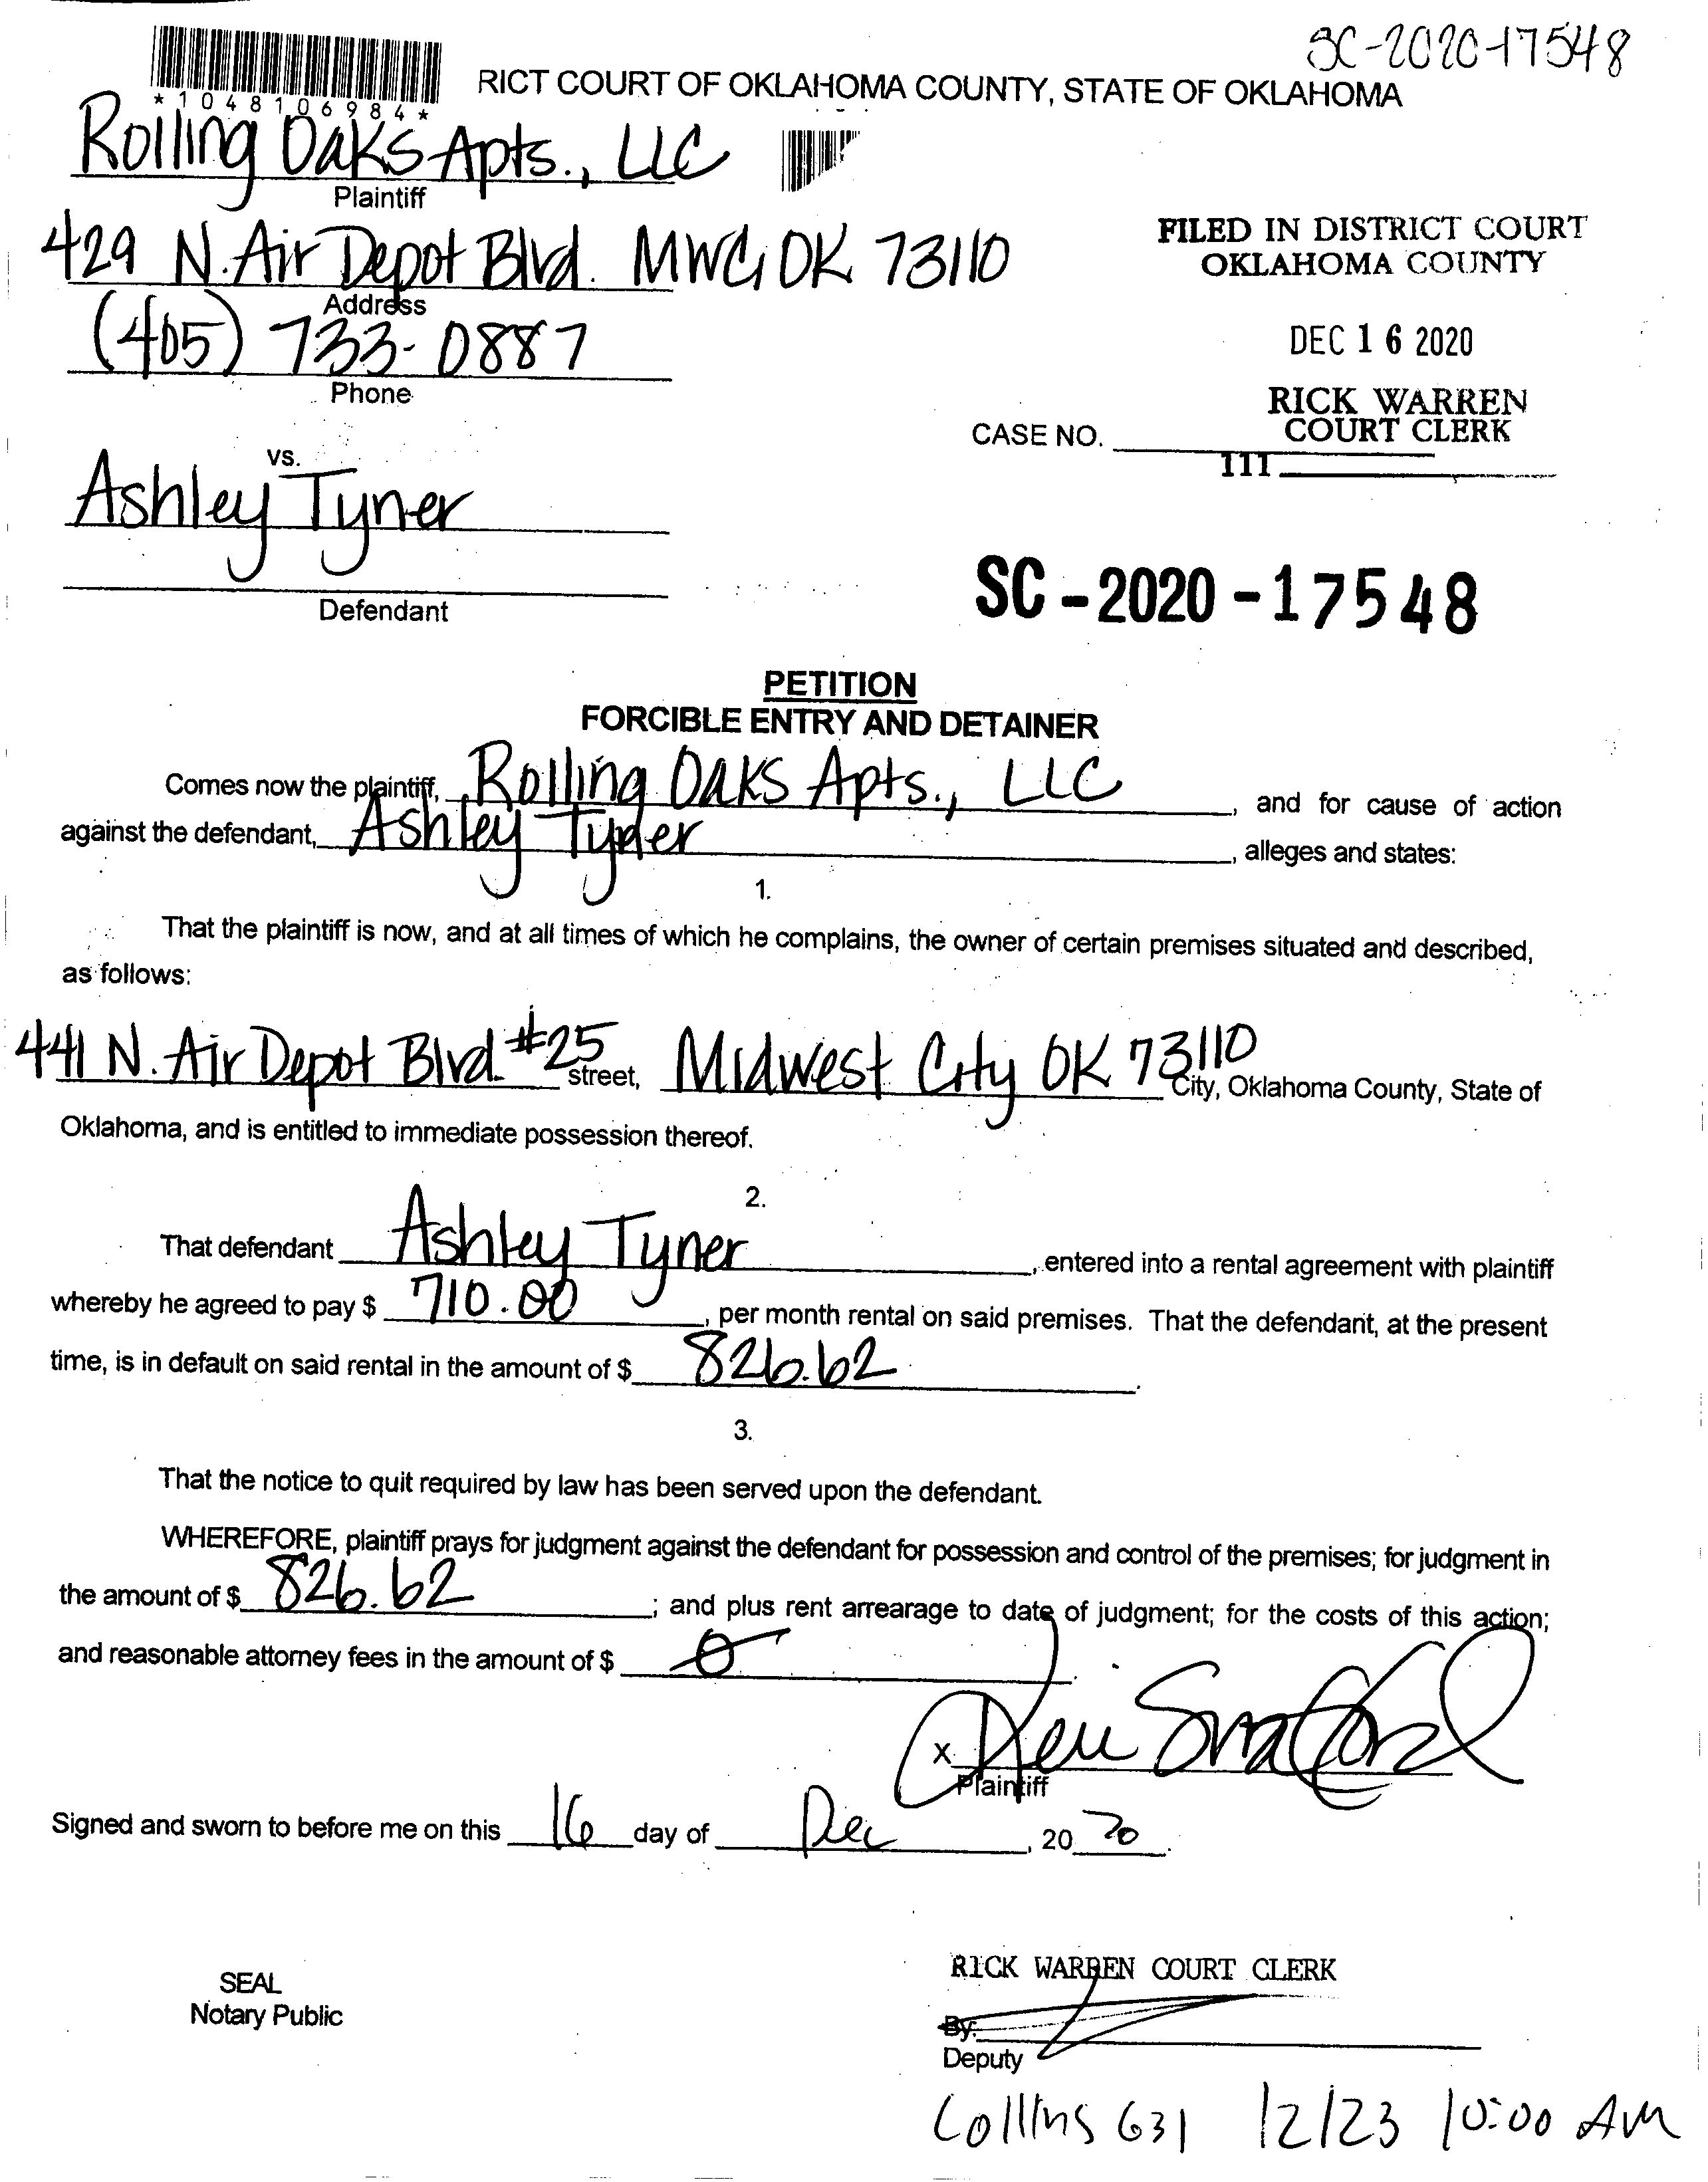 SC-2020-17548
RICT COURT OF OKLAHOMA COUNTY, STATE OF OKLAHOMA
*1048106984*
Rolling Oaks Apts., LLC
Plaintiff
429 N. Air Depot Blvd. MWC, OK 73110
Address
(405) 733-0887
Phone
FILED IN DISTRICT COURT
OKLAHOMA COUNTY
DEC 16 2020
RICK WARREN
COURT CLERK
CASE NO.
111
vs.
Ashley Tyner
Defendant
SC-2020-17548
PETITION
FORCIBLE ENTRY AND DETAINER
Comes now the plaintiff, Rolling Oaks Apts., LLC, and for cause of action
against the defendant, Ashley Tyner, alleges and states:
1.
That the plaintiff is now, and at all times of which he complains, the owner of certain premises situated and described,
as follows:
441 N. Air Depot Blvd. #25 street, Midwest City OK 73110 City, Oklahoma County, State of
Oklahoma, and is entitled to immediate possession thereof.
2.
That defendant Ashley Tyner, entered into a rental agreement with plaintiff
whereby he agreed to pay $ 710.00, per month rental on said premises. That the defendant, at the present
time, is in default on said rental in the amount of $ 826.62.
3.
That the notice to quit required by law has been served upon the defendant.
WHEREFORE, plaintiff prays for judgment against the defendant for possession and control of the premises; for judgment in
the amount of $ 826.62; and plus rent arrearage to date of judgment; for the costs of this action;
and reasonable attorney fees in the amount of $ 0.
X
Plaintiff
Signed and sworn to before me on this 16 day of Dec, 20 20.
SEAL
Notary Public
RICK WARREN COURT CLERK
By:
Deputy
Collins 631 12/23 10:00 AM